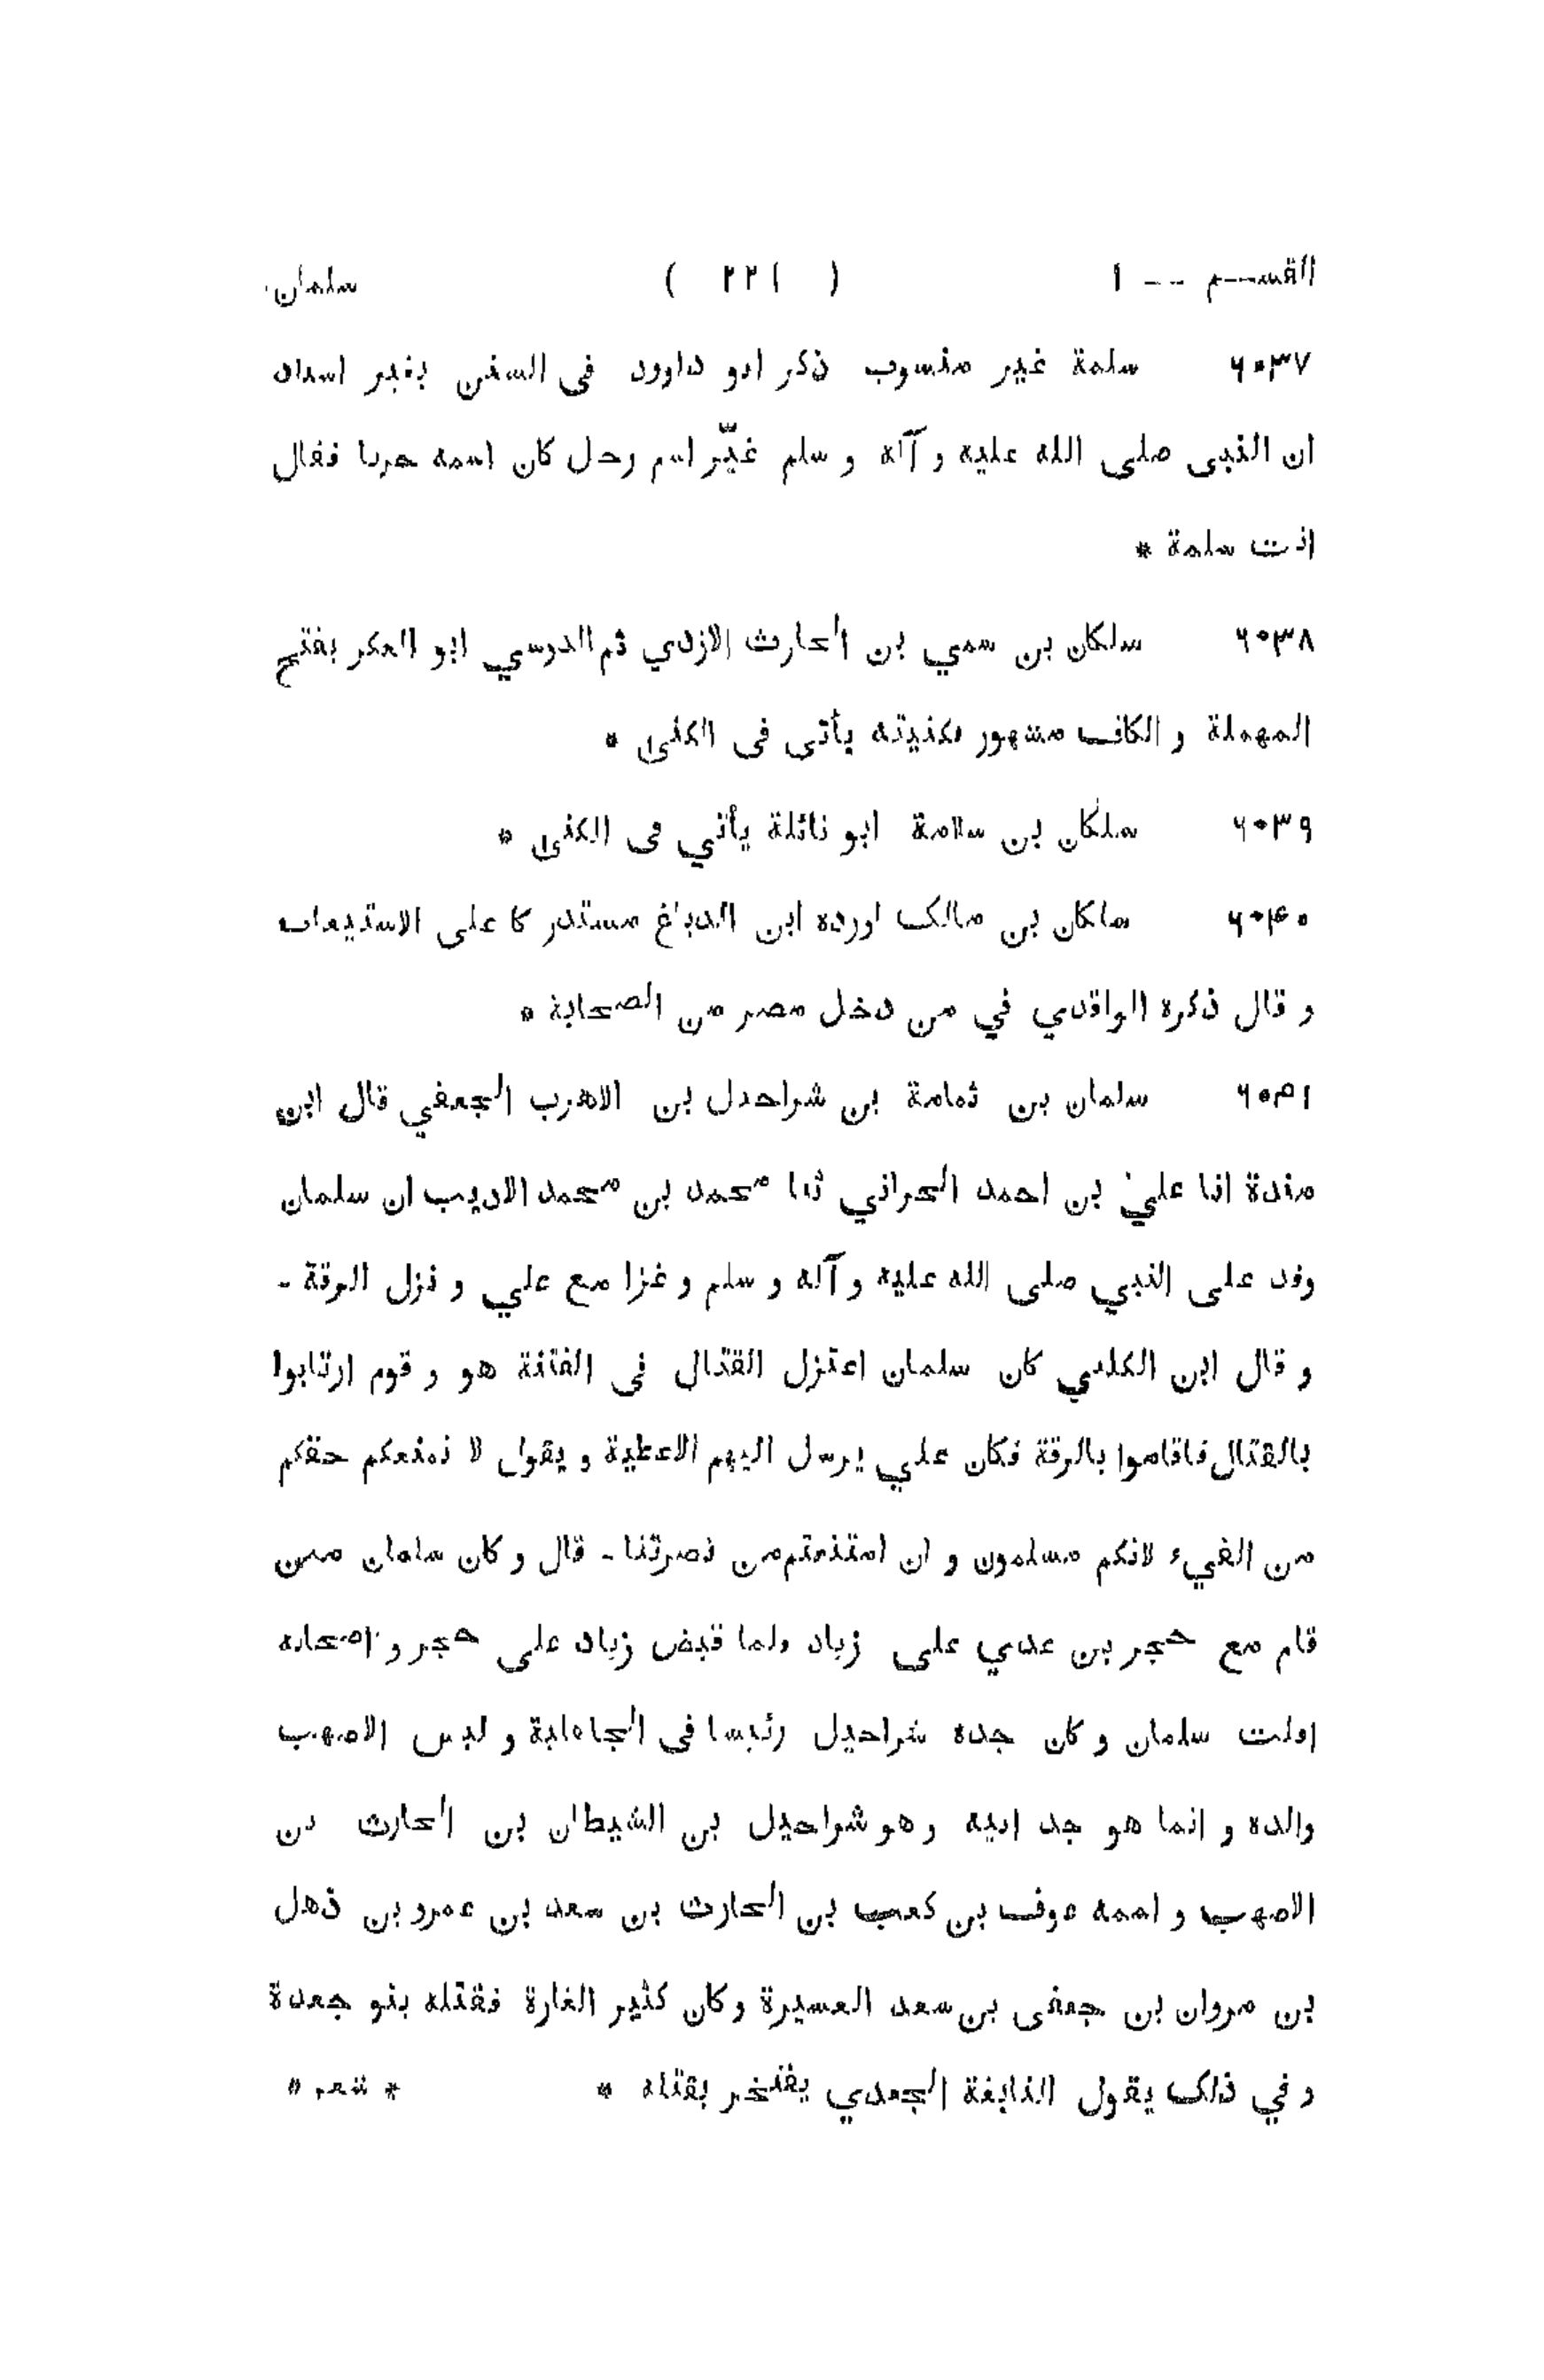 القســم -- ١ ( ٢٢١ ) سلمان
٦٠٣٧ سلمة غير منسوب ذكر ابو داوود فى السنن بغير اسناد
ان النبى صلى الله عليه و آله و سلم غيّر اسم رجل كان اسمه حربا فقال
انت سلمة *
٦٠٣٨ سلكان بن سمي بن الحارث الازدي ثم الدوسي ابو العكر بفتح
المهملة و الكاف مشهور بكنيته يأتى فى الكنى *
٦٠٣٩ سلكان بن سلامة ابو نائلة يأتي فى الكنى *
٦٠٤٠ سلكان بن مالك اورده ابن الدباغ مستدركا على الاستيعاب
و قال ذكره الواقدي في من دخل مصر من الصحابة *
٦٠٤١ سلمان بن ثمامة بن شراحيل بن الاهرب الجعفي قال ابن
مندة انا علي بن احمد الحراني ثنا محمد بن محمد الاديب ان سلمان
وفد على النبي صلى الله عليه و آله و سلم و غزا مع علي و نزل الرقة -
و قال ابن الكلبي كان سلمان اعتزل القتال فى الفتنة هو و قوم ارتابوا
بالقتال فاقاموا بالرقة فكان علي يرسل اليهم الاعطية و يقول لا نمنعكم حقكم
من الفيء لانكم مسلمون و ان امتنعتم من نصرتنا - قال و كان سلمان ممن
قام مع حجر بن عدي على زياد ولما قبض زياد على حجر و اصحابه
افلت سلمان و كان جده شراحيل رئيسا فى الجاهلية و ليس الاصهب
والده و انما هو جد ابيه و هو شراحيل بن الشيطان بن الحارث بن
الاصهب و اسمه عوف بن كعب بن الحارث بن سعد بن عمرو بن ذهل
بن مروان بن جعفى بن سعد العسيرة و كان كثير الغارة فقتله بنو جعدة
و في ذلك يقول النابغة الجعدي يفتخر بقتله * * شعر *